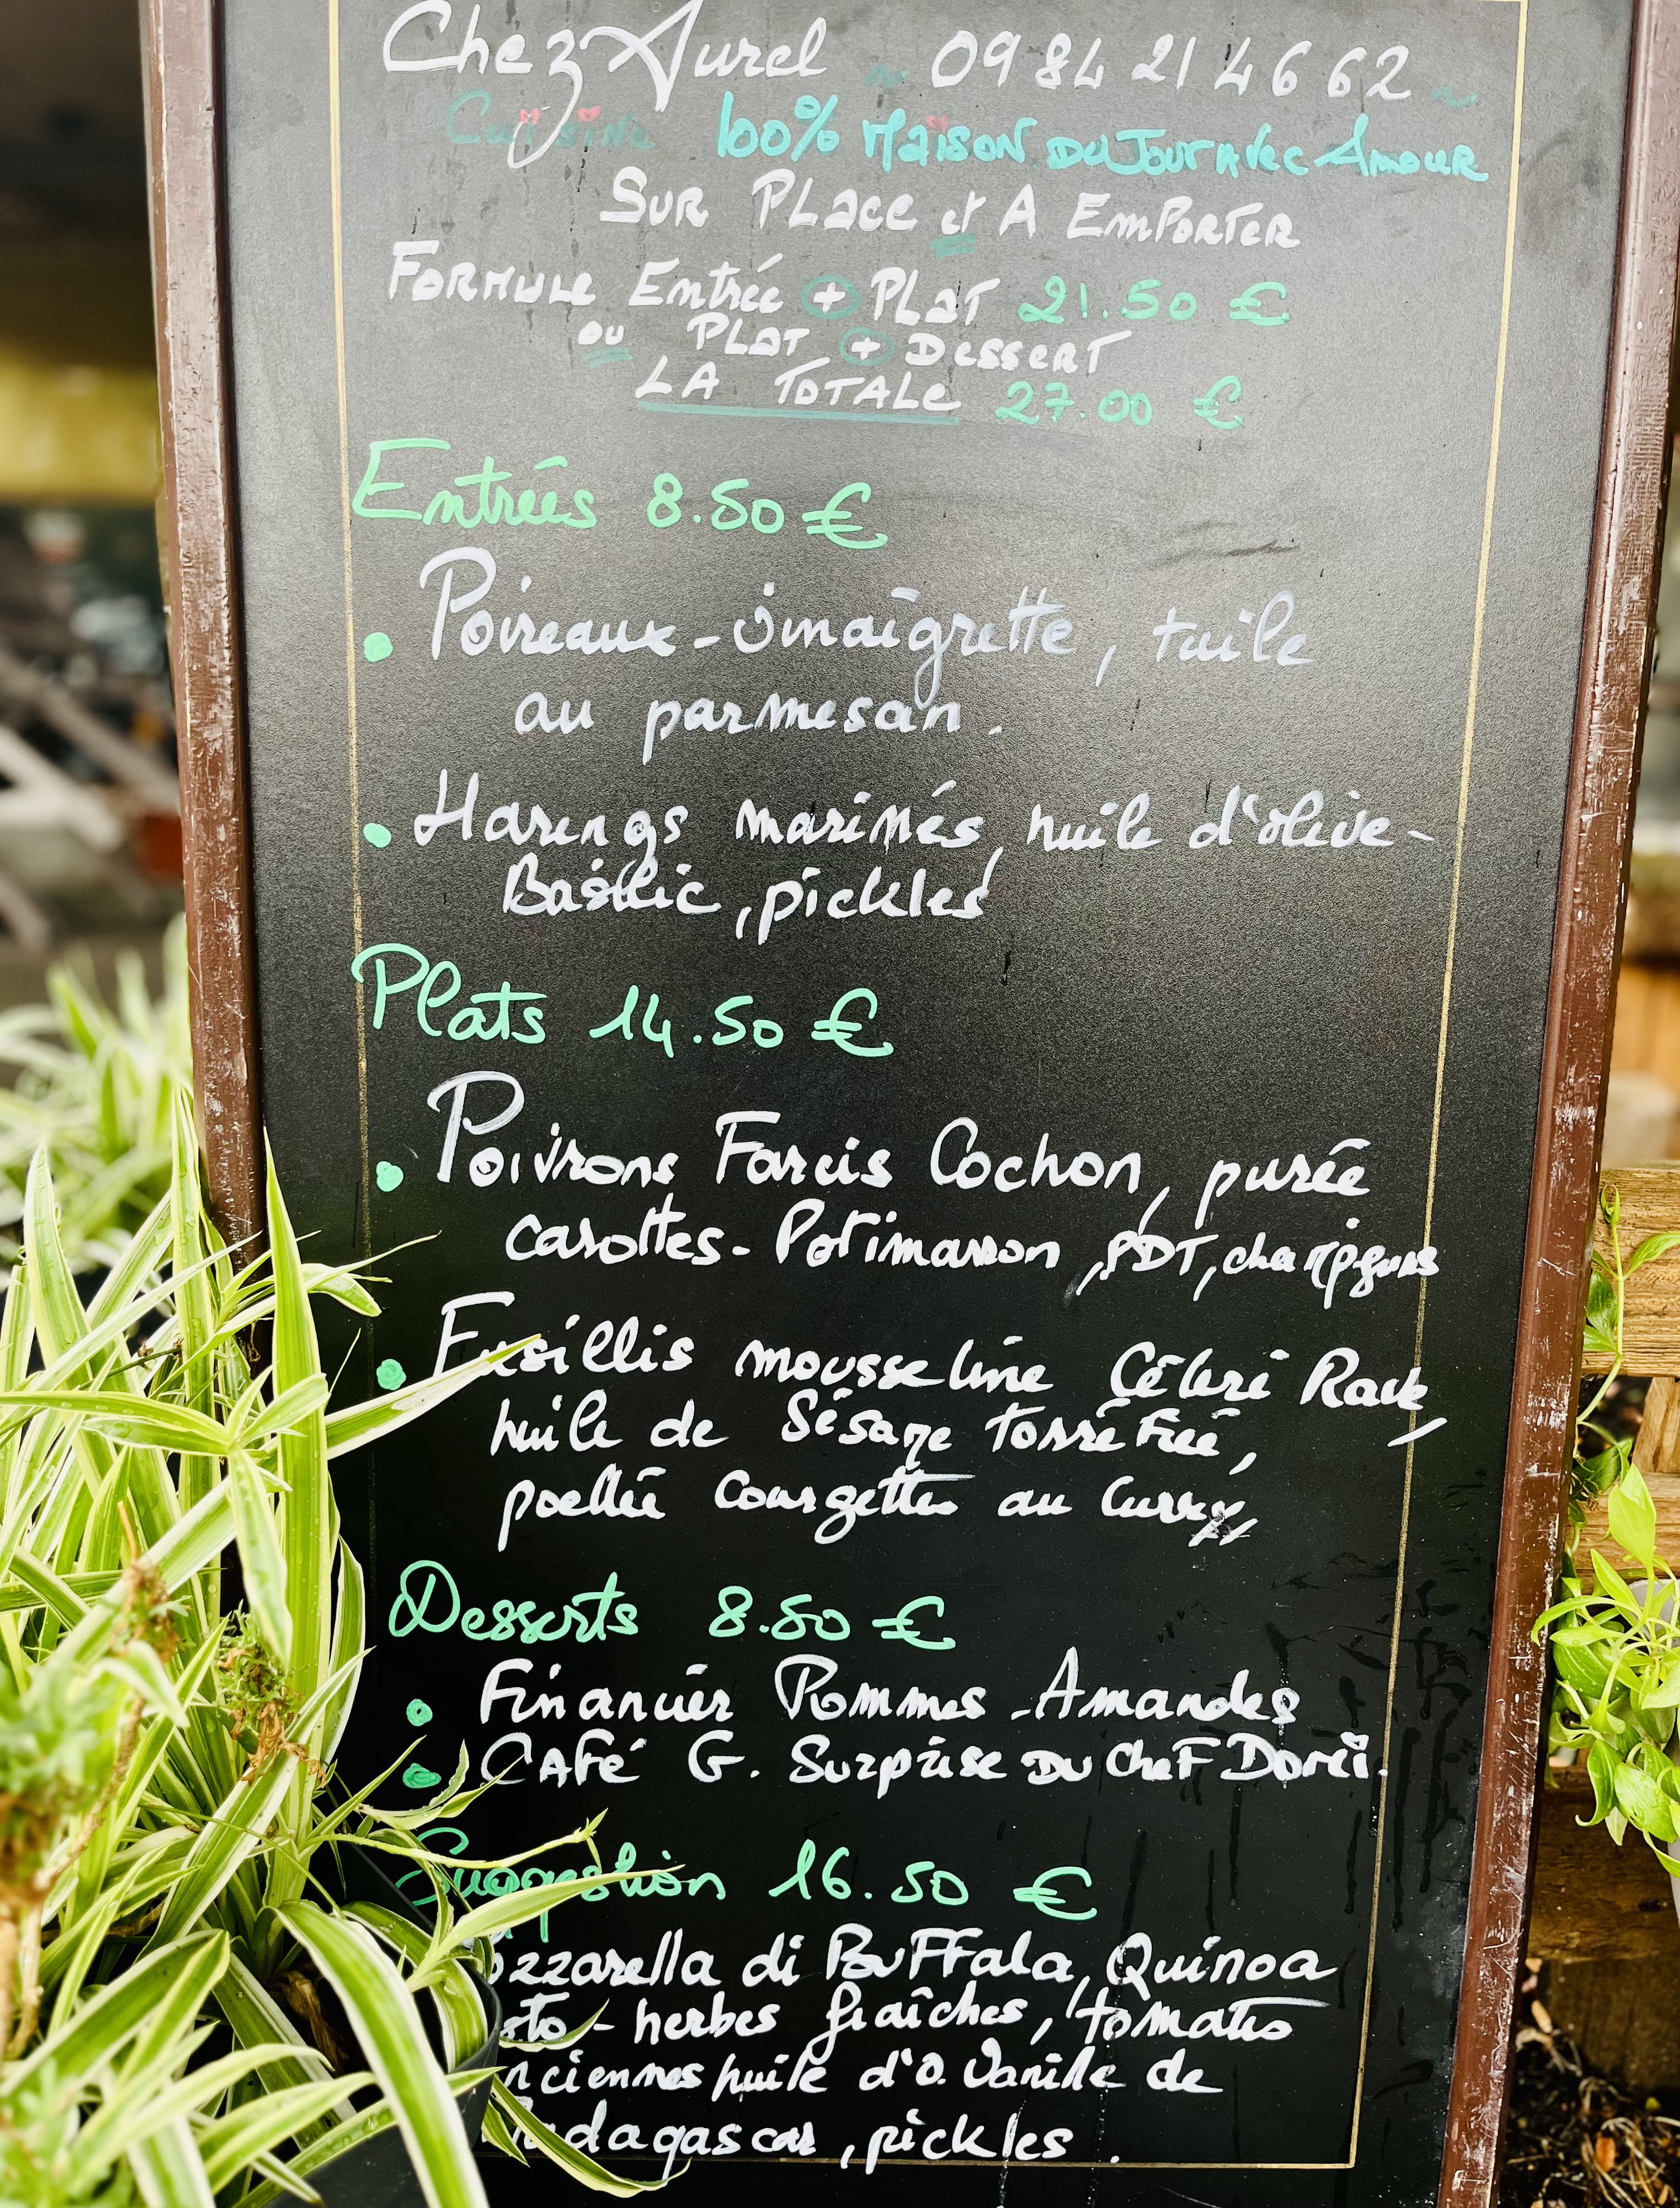 Chez Aurel ~ 09 84 21 46 62 ~
Cuisine 100% Maison du Jour Avec Amour
Sur Place et A Emporter
Formule Entrée + Plat 21.50 €
ou Plat + Dessert
LA TOTALE 27.00 €
Entrées 8.50 €
• Poireaux-vinaigrette, tuile
au parmesan.
• Harengs marinés, huile d'olive-
Basilic, pickles
Plats 14.50 €
• Poivrons Farcis Cochon, purée
carottes-Potimarron, PDT,
• Fusillis mousseline Céleri Rave,
huile de Sésame torréfiée,
poellée Courgettes au Curry
Desserts 8.50 €
• Financier Pommes-Amandes
• Café G. Surprise du Chef
Suggestion 16.50 €
ozzarella di Buffala, Quinoa
sto-herbes fraîches, tomates
nciennes huile d'O. Vanille de
adagascar, pickles.